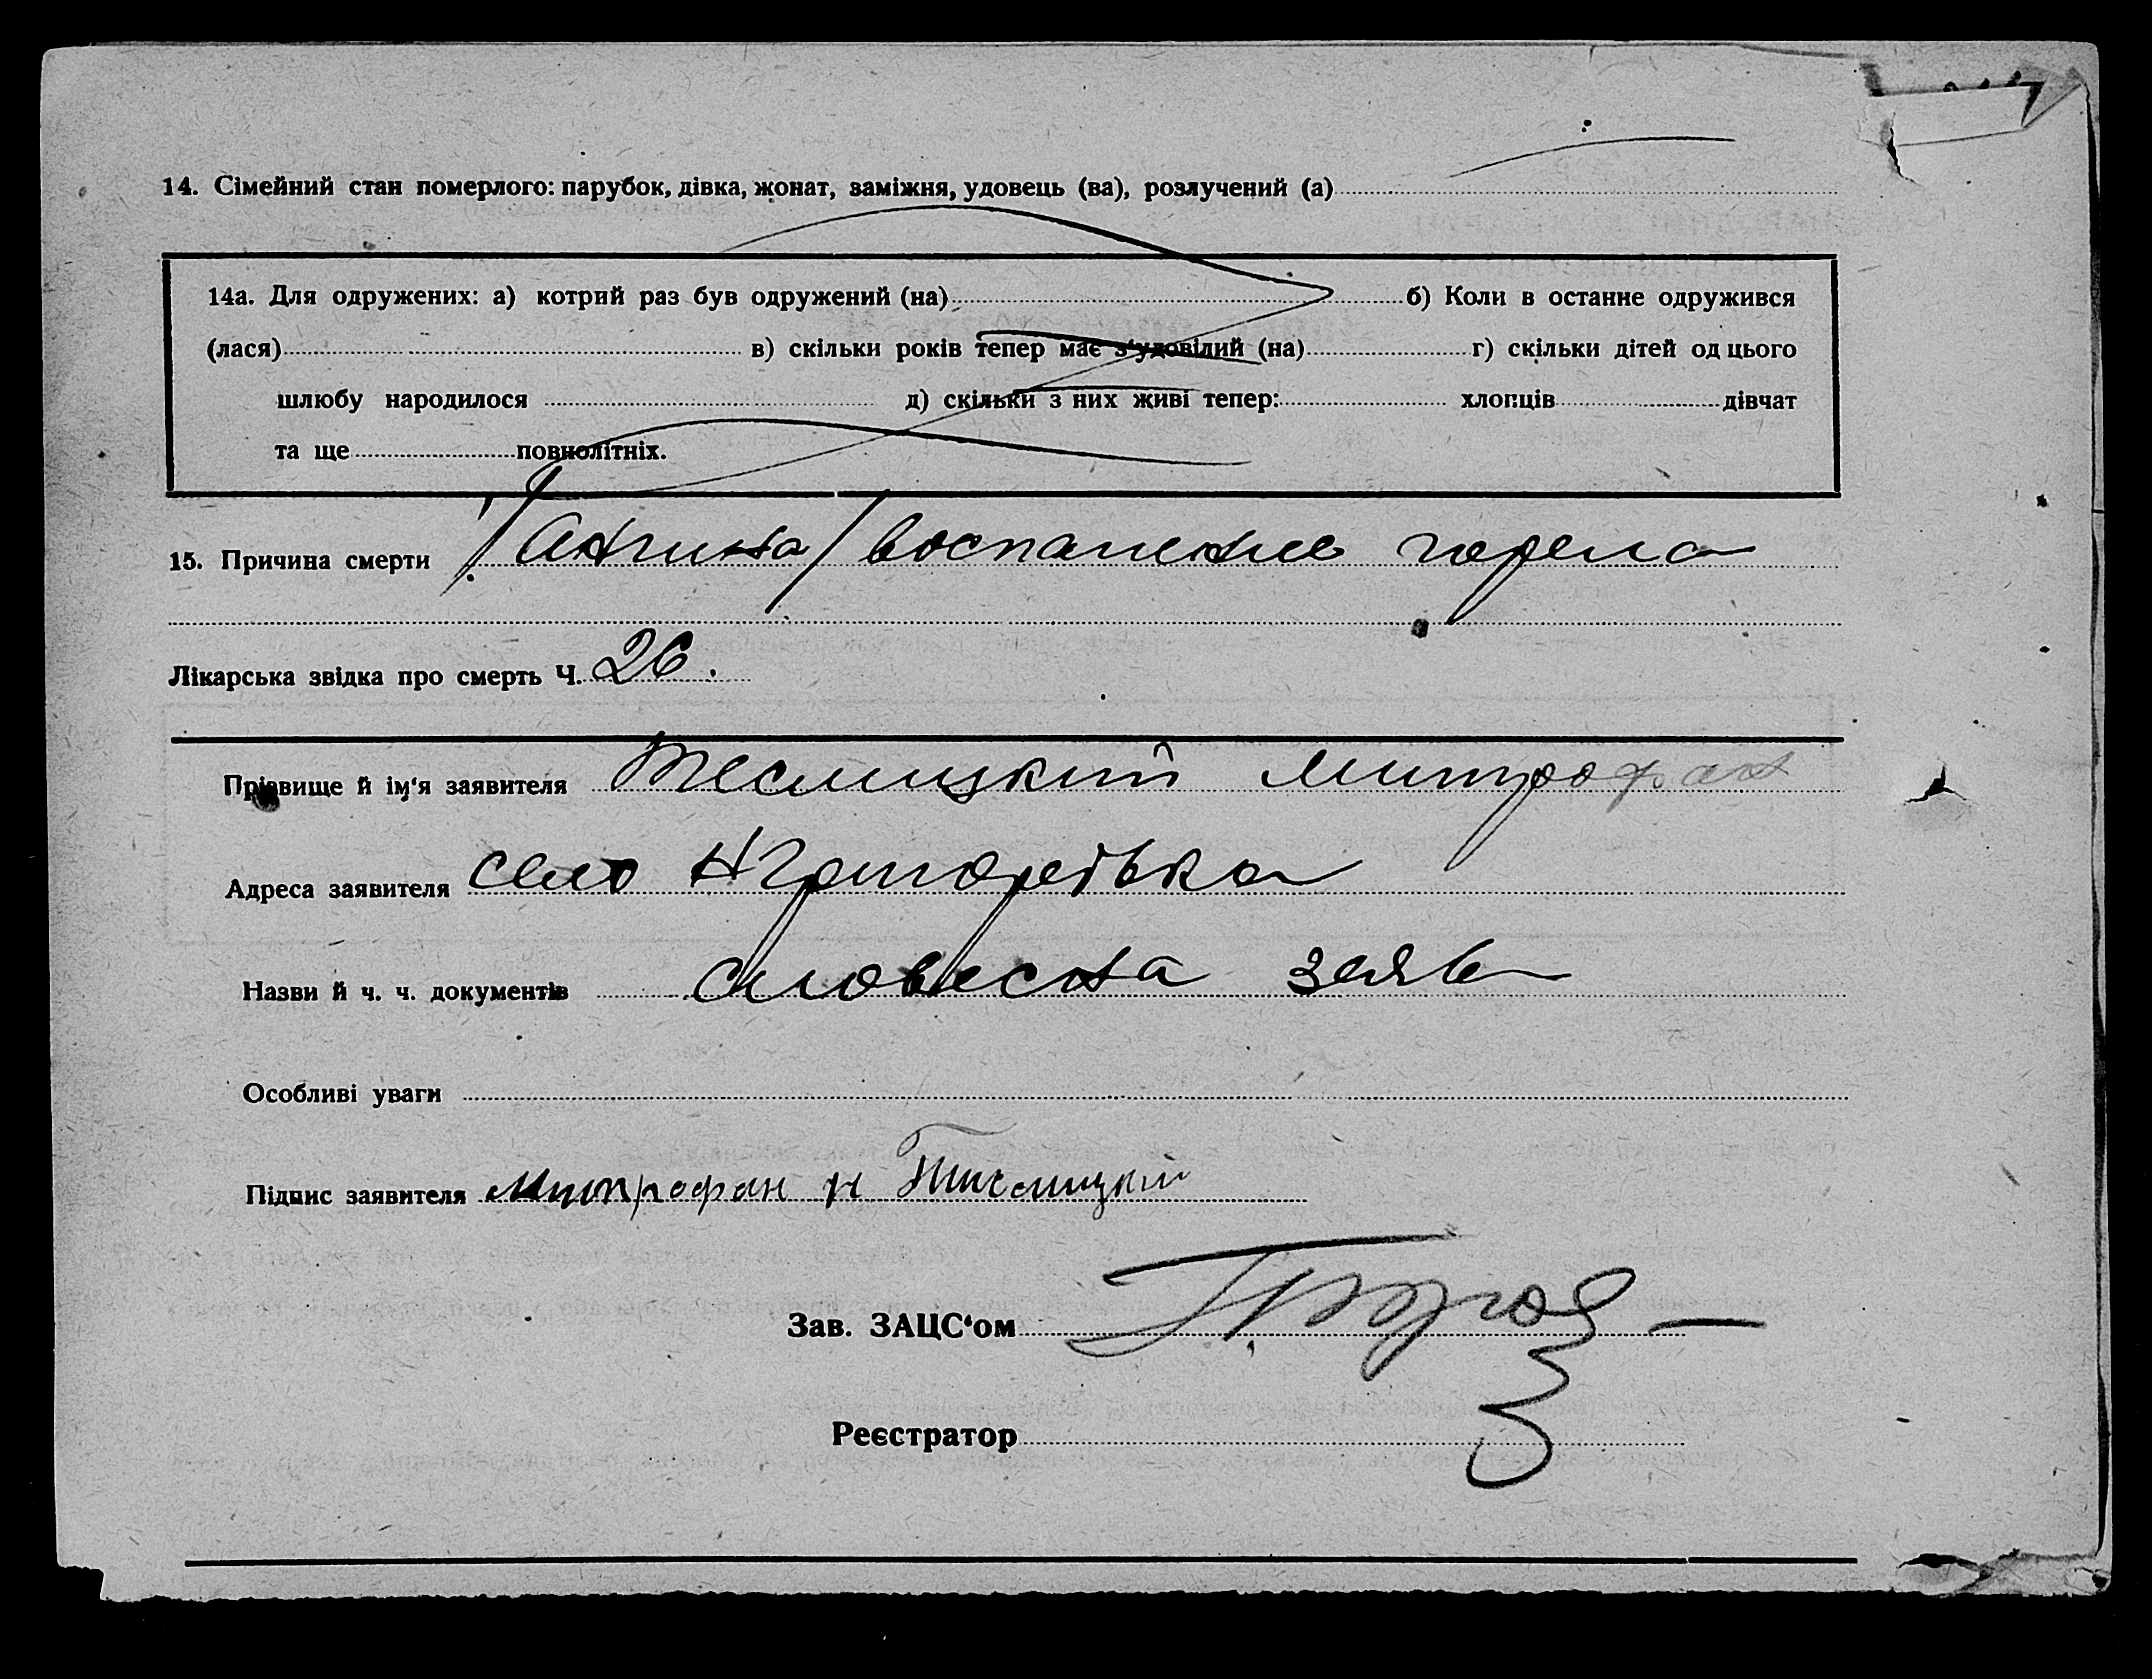 14. Сімейний стан померлого: парубок, дівка, жонат, заміжня, удовець (ва), розлучений (а)
14а. Для одружених: а) котрий раз був одружений (на) б) Коли в останнє одружився
(лася) в) скільки років тепер має з‘удовілий (на) г) скільки дітей од цього
шлюбу народилося д) скільки з них живі тепер: хлопців дівчат
та ще повнолітніх.
15. Причина смерти /Ангина/ воспаление горела
Лікарська звідка про смерть Ч. 26.
Прізвище й ім‘я заявителя Теслицкий Митрофан
Адреса заявителя село
Назви й ч. ч. документів словесна заява
Особливі уваги
Підпис заявителя Митрофан Н Тислицкий
Зав. ЗАЦС‘ом
Реєстратор